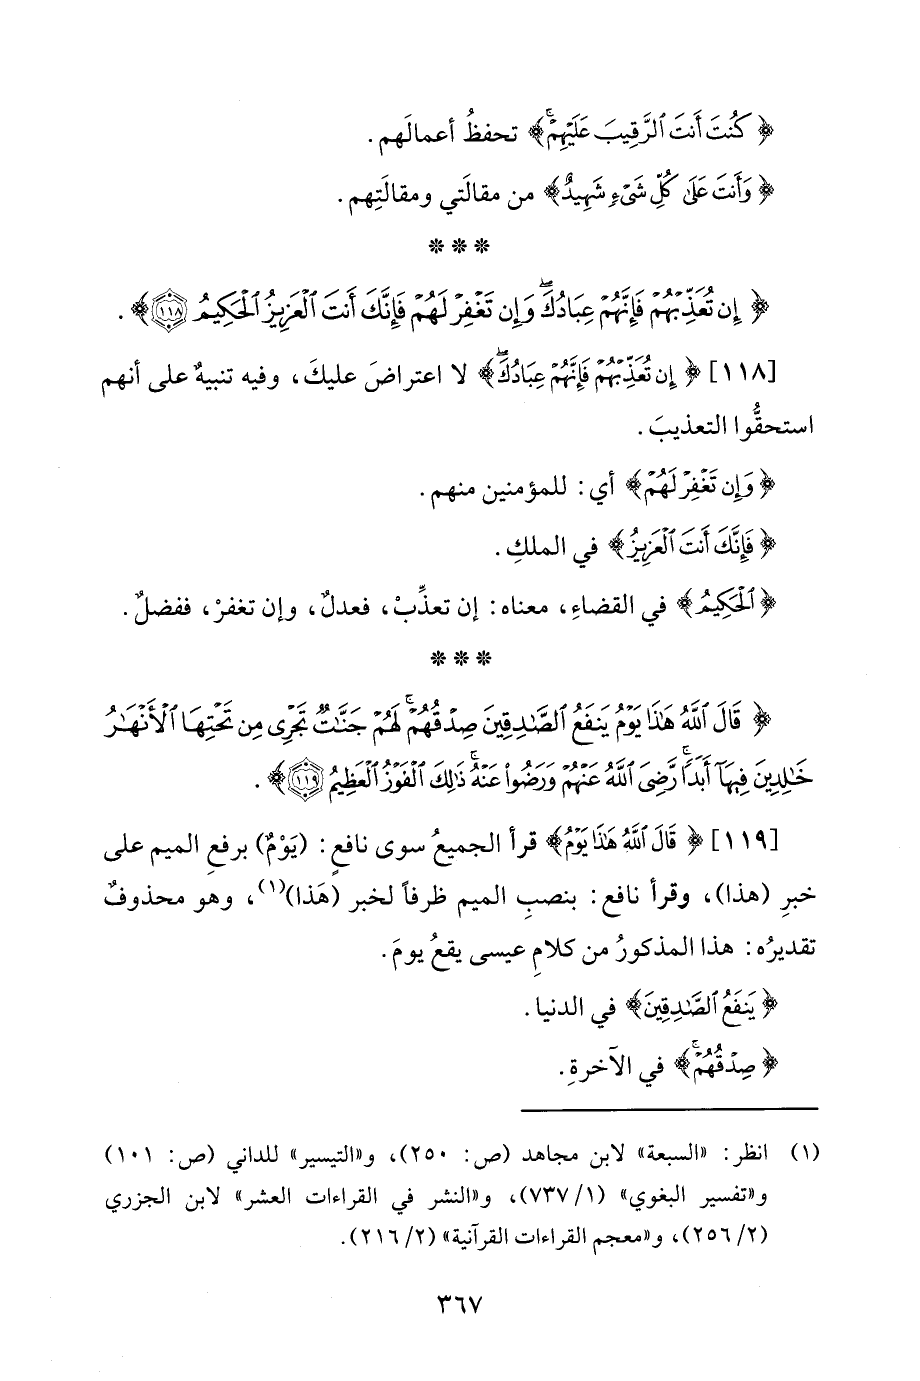 ﴿ كُنتَ أَنتَ ٱلرَّقِيبَ عَلَيۡهِمۡۚ ﴾ تحفظُ أعمالَهم.
﴿ وَأَنتَ عَلَىٰ كُلِّ شَيۡءٖ شَهِيدٌ ﴾ من مقالَتي ومقالَتِهم.
* * *
﴿ إِن تُعَذِّبۡهُمۡ فَإِنَّهُمۡ عِبَادُكَۖ وَإِن تَغۡفِرۡ لَهُمۡ فَإِنَّكَ أَنتَ ٱلۡعَزِيزُ ٱلۡحَكِيمُ ١١٨ ﴾.
[١١٨] ﴿ إِن تُعَذِّبۡهُمۡ فَإِنَّهُمۡ عِبَادُكَۖ ﴾ لا اعتراضَ عليكَ، وفيه تنبيهٌ على أنهم
استحقُّوا التعذيبَ.
﴿ وَإِن تَغۡفِرۡ لَهُمۡ ﴾ أي: للمؤمنين منهم.
﴿ فَإِنَّكَ أَنتَ ٱلۡعَزِيزُ ﴾ في الملكِ.
﴿ ٱلۡحَكِيمُ ﴾ في القضاءِ، معناه: إن تعذِّبْ، فعدلٌ، وإن تغفرْ، ففضلٌ.
* * *
﴿ قَالَ ٱللَّهُ هَٰذَا يَوۡمُ يَنفَعُ ٱلصَّٰدِقِينَ صِدۡقُهُمۡۚ لَهُمۡ جَنَّٰتٞ تَجۡرِي مِن تَحۡتِهَا ٱلۡأَنۡهَٰرُ
خَٰلِدِينَ فِيهَآ أَبَدٗاۚ رَّضِيَ ٱللَّهُ عَنۡهُمۡ وَرَضُواْ عَنۡهُۚ ذَٰلِكَ ٱلۡفَوۡزُ ٱلۡعَظِيمُ ١١٩ ﴾.
[١١٩] ﴿ قَالَ ٱللَّهُ هَٰذَا يَوۡمُ ﴾ قرأ الجميعُ سوى نافعٍ: (يَوْمُ) برفعِ الميم على
خبرِ (هذا)، وقرأ نافع: بنصبِ الميم ظرفاً لخبر (هَذا)(١)، وهو محذوفٌ
تقديرُه: هذا المذكورُ من كلامِ عيسى يقعُ يومَ.
﴿ يَنفَعُ ٱلصَّٰدِقِينَ ﴾ في الدنيا.
﴿ صِدۡقُهُمۡۚ ﴾ في الآخرةِ.
(١) انظر: «السبعة» لابن مجاهد (ص: ٢٥٠)، و«التيسير» للداني (ص: ١٠١)
و«تفسير البغوي» (١/ ٧٣٧)، و«النشر في القراءات العشر» لابن الجزري
(٢/ ٢٥٦)، و«معجم القراءات القرآنية» (٢/ ٢١٦).
٣٦٧